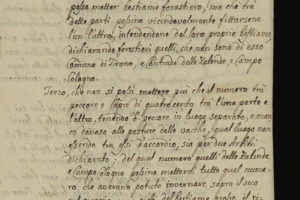 possa metter bestiame forastiero, ma che trà
dette parti possino vicendevolmente fittarsene
l'un l'altro, intendendone del loro proprio bestiame
dichiarando forestieri quelli, che non sono di esso
Comune di Tirano, e Contrade delle Zalende e Campo
Cologno.
Terzo, che non si possi mettere più che il numero trà
pecore, e capre di quatrocento trà l'una parte e
l'altra, tenendo di pecare in luogo separato, e man
co danoso alle pasture delle vacche, qual luogo non
essendo trà essi d'accordio, sia per due Arbitri
dichiarato; del qual numero quelli delle Zalende
e Campo Cologno possino metterai tutto quel nume-
ro che averano potuto invernare sopra il suo
del bestiame